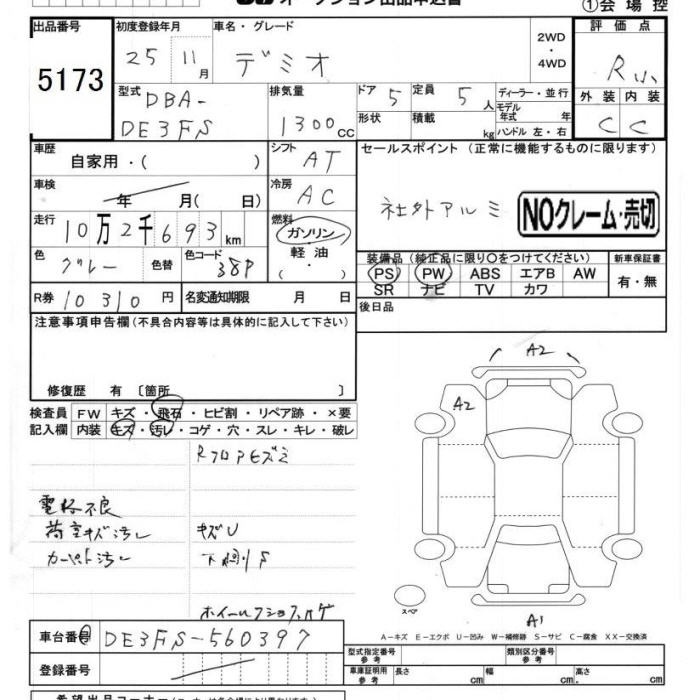 オークション出品申込書
①会場控
出品番号 初度登録年月 車名・グレード 2WD・4WD 評価点
5173 25 11月 デミオ R
型式 排気量 ドア 定員 ディーラー・並行 外装 内装
DBA-DE3FS 1300cc 5 5人 モデル年式 年 C C
形状 積載 kg ハンドル 左・右
車歴 自家用・( ) シフト AT セールスポイント (正常に機能するものに限ります)
車検 年 月( 日) 冷房 AC 社外アルミ NOクレーム・売切
走行 10万2千693km 燃料 ガソリン・軽油・( )
色 グレー 色替 色コード 38P
装備品 (純正品に限り○をつけてください) 新車保証書
PS PW ABS エアB AW 有・無
SR ナビ TV カワ
R券 10310円 名変通知期限 月 日 後日品
注意事項申告欄(不具合内容等は具体的に記入して下さい)
修復歴 有 〔箇所 〕
検査員記入欄 FW キズ・飛石・ヒビ割・リペア跡・×要
内装 キズ・汚レ・コゲ・穴・スレ・キレ・破レ
電格不良
荷室キズ汚レ キズU
カーペット汚レ 下廻りS
A2
A2
A1
スペア
A-キズ E-エクボ U-凹み W-補修跡 S-サビ C-腐食 XX-交換済
車台番号 DE3FS-560397
型式指定番号 参考 類別区分番号 参考
登録番号 車庫証明用 参考 長さ cm. 幅 cm. 高さ cm.